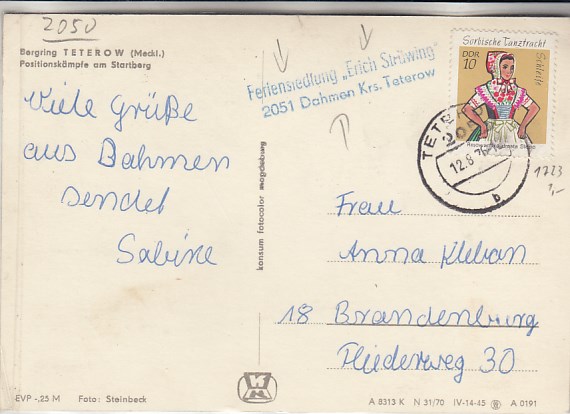 2050
Bergring TETEROW (Meckl.)
Positionskämpfe am Startberg
Viele Grüße
aus Dahmen
sendet
Sabine
Feriensiedlung „Erich Strüwing"
2051 Dahmen Krs. Teterow
Sorbische Tanztracht
DDR
10
Schleife
TETEROW
12.8.76
b
1723
1,-
Frau
Anna Kleban
18 Brandenburg
Fliederweg 30
konsum fotocolor magdeburg
EVP -,25 M Foto: Steinbeck
A 8313 K N 31/70 IV-14-45 A 0191